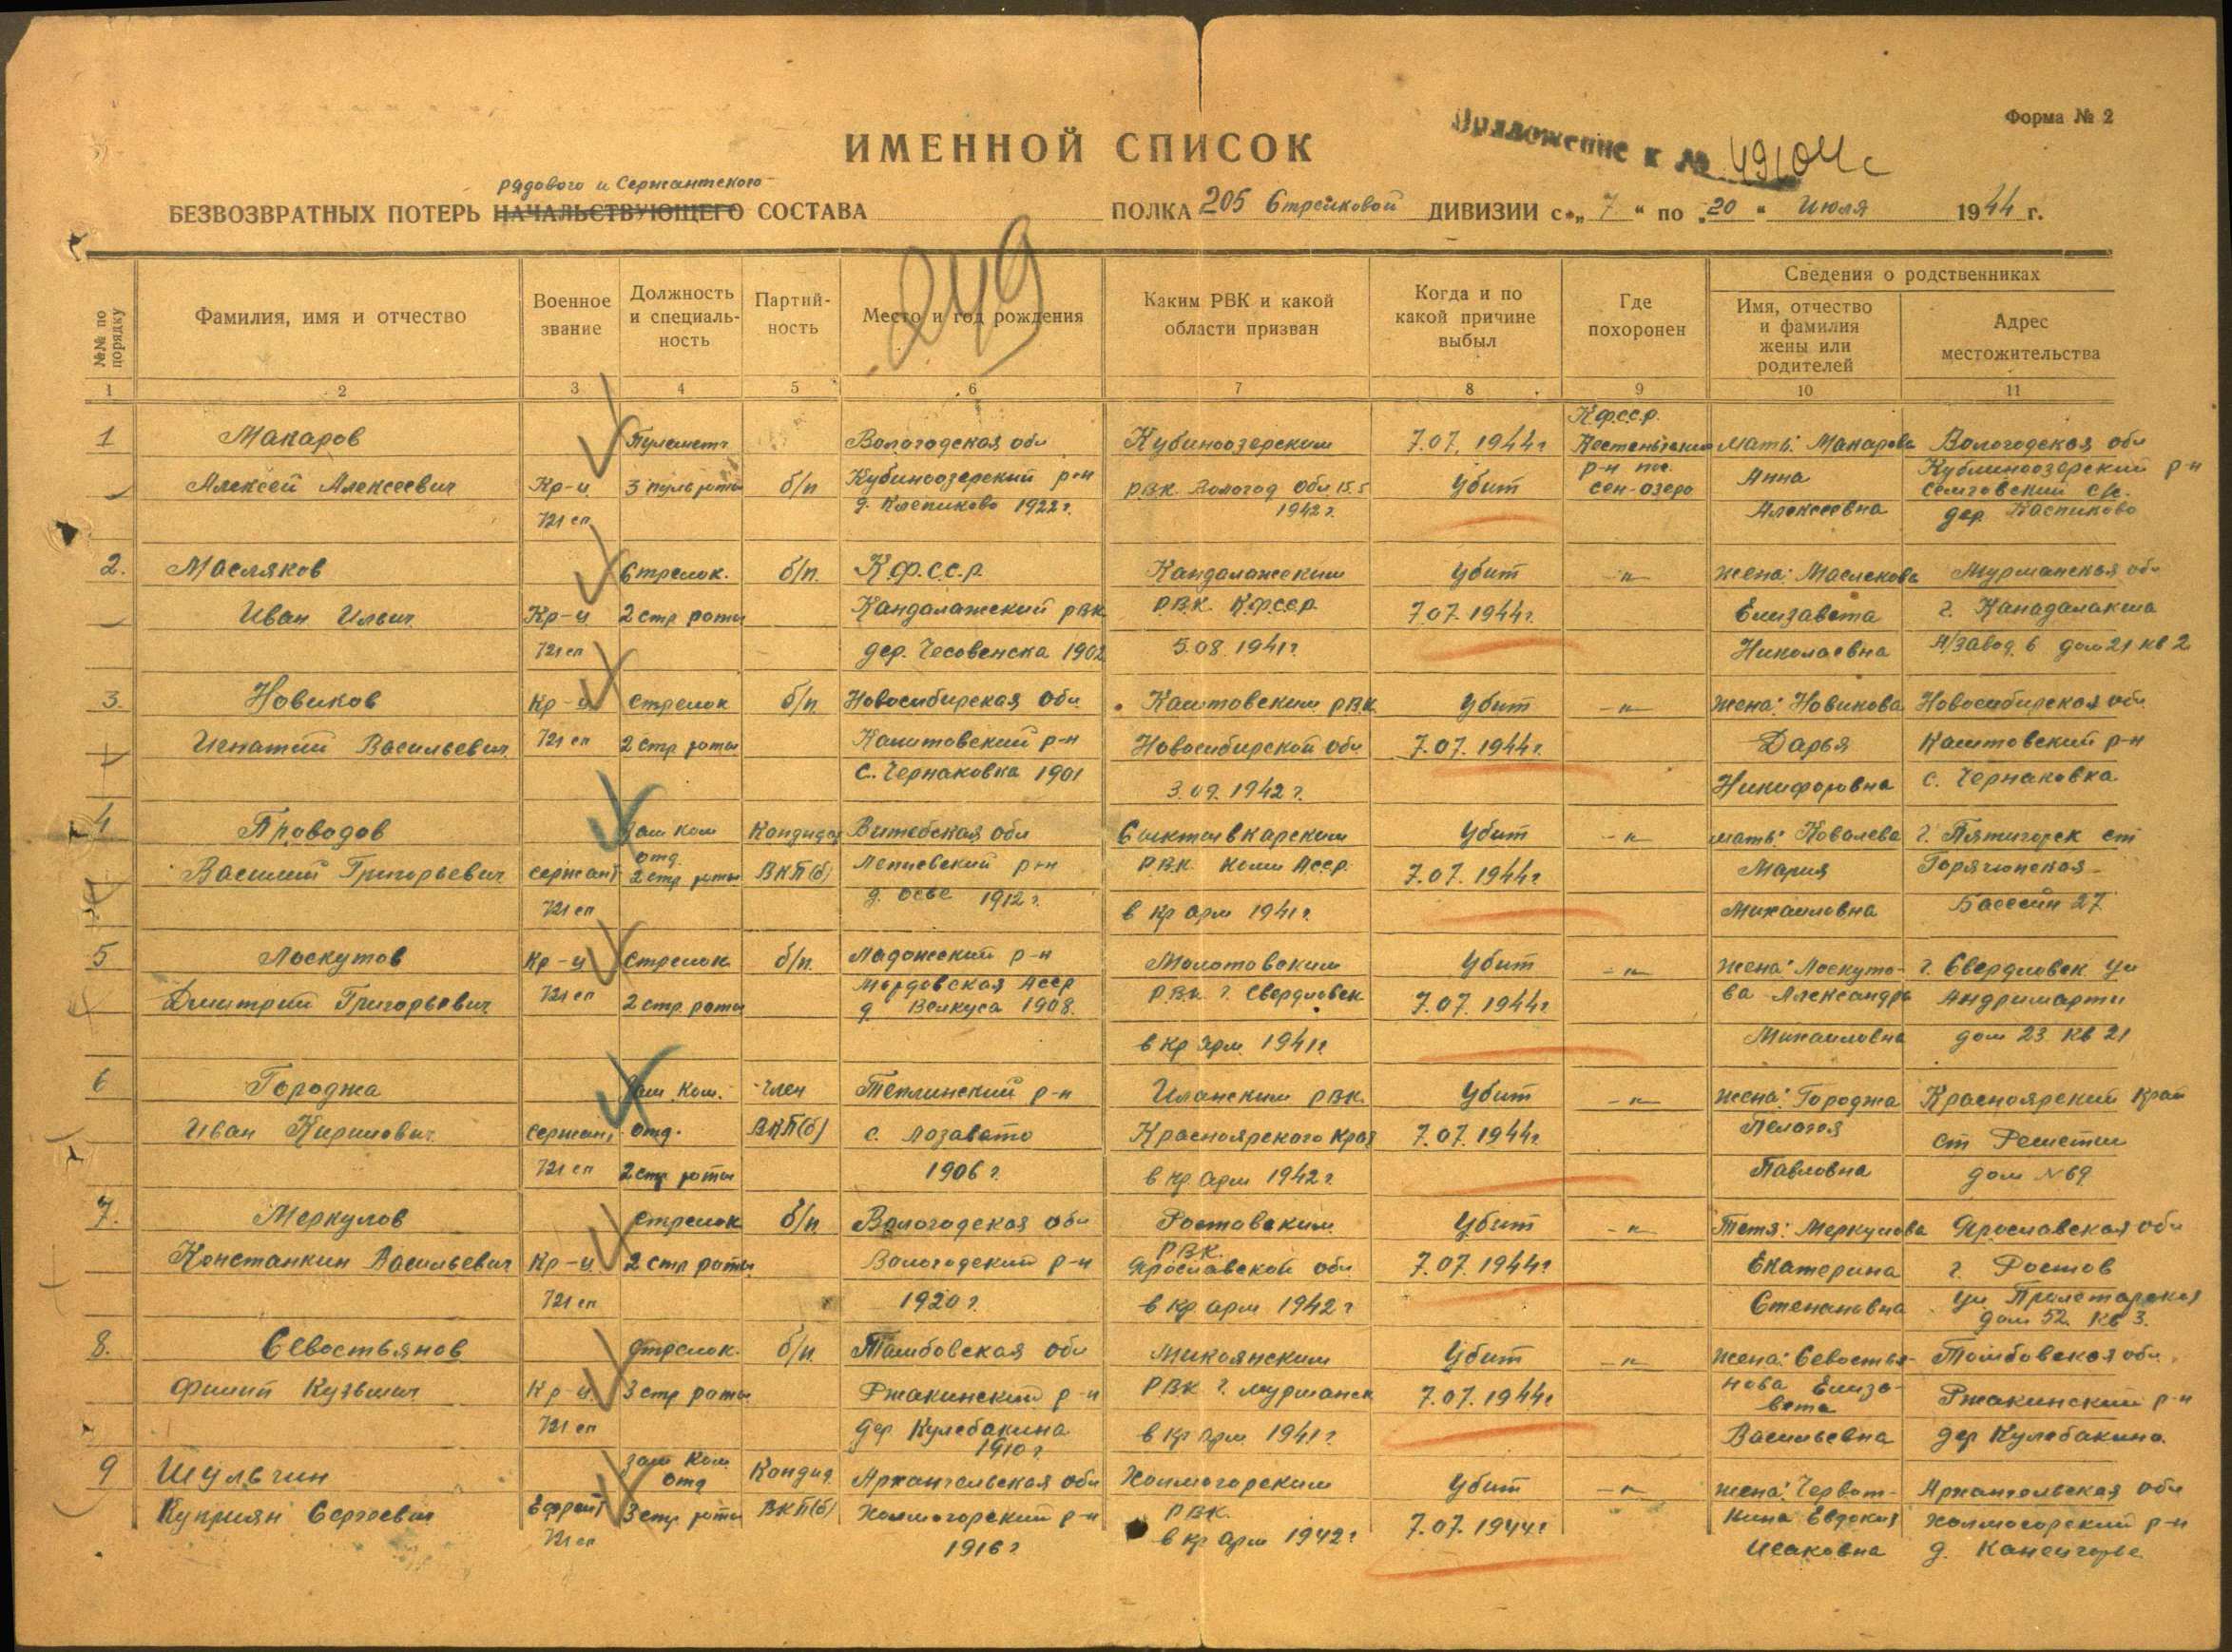 Форма № 2
Приложение к № 49104с
ИМЕННОЙ СПИСОК
рядового и Сержантского
БЕЗВОЗВРАТНЫХ ПОТЕРЬ НАЧАЛЬСТВУЮЩЕГО СОСТАВА ПОЛКА 205 Стрелковой ДИВИЗИИ с „ 7 “ по „ 20 “ Июля 1944 г.
249
№№ по порядку
Фамилия, имя и отчество
Военное звание
Должность и специаль-ность
Партий-ность
Место и год рождения
Каким РВК и какой области призван
Когда и по какой причине выбыл
Где похоронен
Сведения о родственниках
Имя, отчество и фамилия жены или родителей
Адрес местожительства
1 2 3 4 5 6 7 8 9 10 11
К.ф.сс.р.
1 Макаров Пулеметч Вологодская обл Кубиноозерским 7.07.1944г Кестеньгский мать: Макарова Вологодская обл
Алексей Алексеевич Кр-ц 3 пуль роты б/п Кубиноозерский р-н РВК Вологод Обл 15.5 Убит р-н пос. Анна Кублиноозерский р-н
721 сп д. Клепиково 1922г. 1942г. сен-озеро Алексеевна с/с. дер.
2. Масляков Стрелок. б/п. К.ф.с.с.р. Кандалажским Убит -"- жена: Маслекова Мурманская обл
Иван Ильич Кр-ц 2 стр роты Кандалажский рвк РВК. К.ф.сср. 7.07.1944г. Елизавета г. Канадалакша
721 сп дер. Чесовенска 1902 5.08.1941г. Николаевна завод 6 дом 21 кв 2
3. Новиков Кр-ц Стрелок б/п. Новосибирская Обл Каштовским РВК Убит -"- жена: Новикова Новосибирская обл
Игнатий Васильевич 721 сп 2 стр роты Каштовский р-н Новосибирской обл 7.07.1944г. Дарья Каштовский р-н
с. Чернаковка 1901 3.09.1942г. Никифоровна с. Чернаковка
4 Проводов Зам ком Кандидат Витебская обл Сыктывкарским Убит -"- мать: Ковалева г. Пятигорск ст
Василий Григорьевич сержант отд. 2 стр роты ВКП(б) Лепневский р-н РВК Коми Асср. 7.07.1944г Мария Горячюнская
721 сп д. Осве 1912г. в кр арм 1941г. Михаиловна Бассейн 27
5 Лоскутов Кр-ц Стрелок б/п. Ладожский р-н Молотовским Убит -"- жена: Лоскуто- г. Свердловск ул
Дмитрий Григорьевич 721 сп 2 стр роты Мордовская Асср РВК г. Свердловск 7.07.1944г ва Александра
д. Велкуса 1908. в кр арм 1941г Михаиловна дом 23 кв 21
6 Городжа Зам. Ком. Член Теплинский р-н Иланским РВК. Убит -"- жена: Городжа Красноярский край
Иван Кирилович сержант отд. ВКП(б) с. Лозавато Красноярского края 7.07.1944г. Пелогея ст Решетии
721 сп 2 стр роты 1906г. в кр арм 1942г Павловна дом №69
7. Меркулов Стрелок б/п. Вологодская обл Ростовским Убит -"- Тетя: Меркулова Ярославская обл
Констанкин Васильевич Кр-ц 2 стр роты Вологодский р-н РВК. Ярославской обл 7.07.1944г Екатерина г. Ростов
721 сп 1920г. в кр арм 1942г Степановна ул Пролетарская дом 52. кв 3.
8. Севостьянов Стрелок. б/п. Тамбовская обл Микоянским Убит -"- жена: Севостья- Тамбовская обл.
Филип Кузьмич Кр-ц 3 стр роты Ржакинский р-н РВК г. Мурманск 7.07.1944г нова Елиза-вета Ржакинский р-н
721 сп дер Кулебакина 1910г. в кр арм 1941г. Васильевна дер Кулебакина.
9 Шульгин Зам Ком отд Кандид. Архангельская обл Холмогорским Убит -"- жена: Червот- Архангольская обл
Куприян Сергеевич Ефрейт 3 стр роты ВКП(б) Холмогорский р-н РВК. 7.07.1944г кина Евдокия Холмогорский р-н
721 сп 1916г в кр арм 1942г Исаковна д. Канецгорье